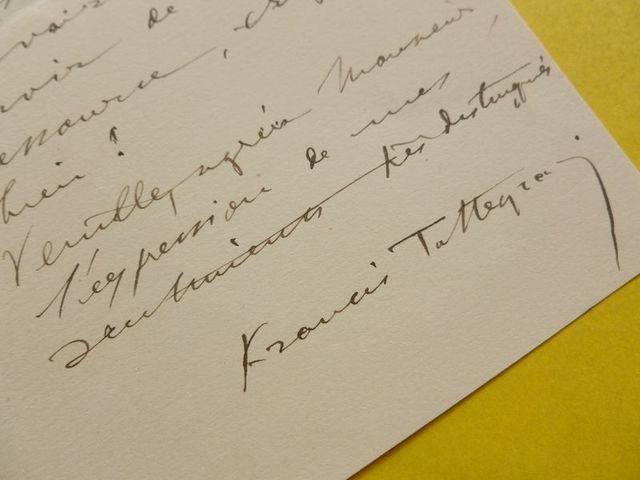 voir de
essource,
bien !
Veuillez agréer Monsieur,
l'expression de mes
sentiments très distingués
Francis Tattegrain